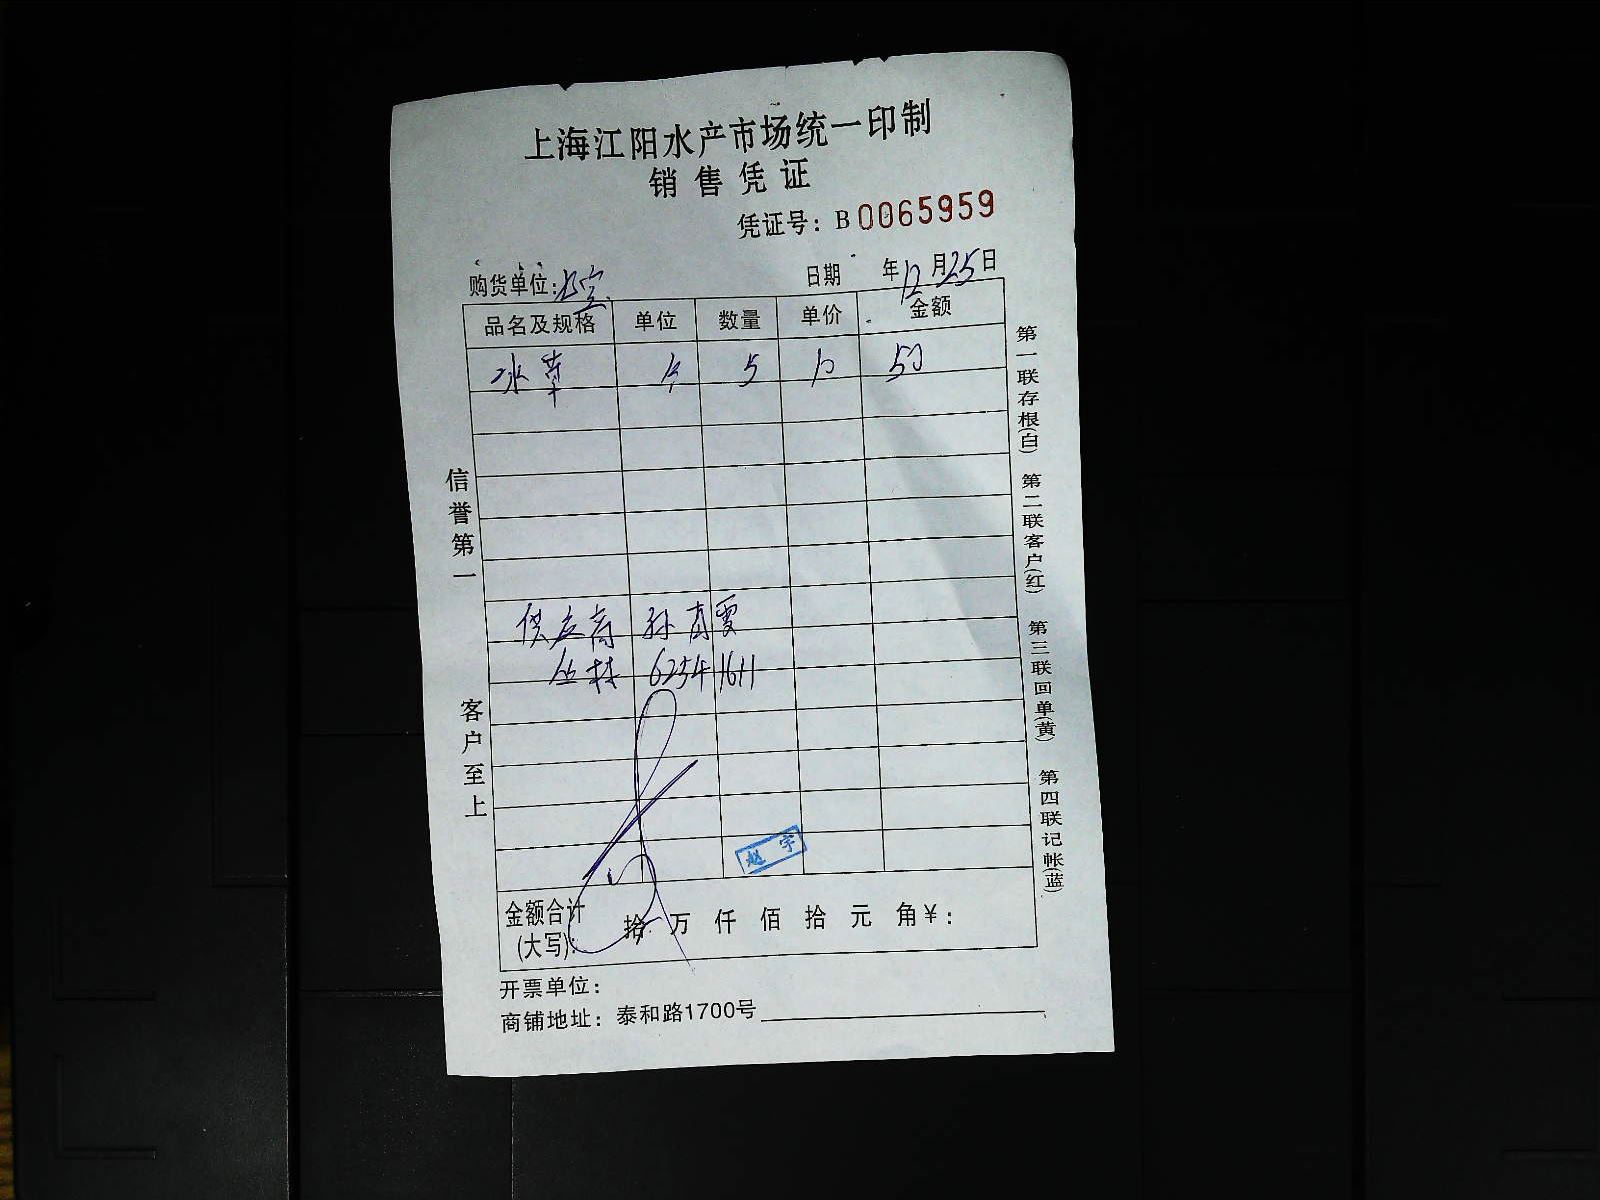 上海江阳水产市场统一印制
销售凭证
凭证号：B0065959
购货单位： 日期 年12月25日
品名及规格 单位 数量 单价 金额
水草 斤 5 10 50
供应商 孙
丛林 62541611
赵宇
金额合计(大写)： 拾 万 仟 佰 拾 元 角 ¥：
开票单位：
商铺地址：泰和路1700号
信誉第一 客户至上
第一联存根(白) 第二联客户(红) 第三联回单(黄) 第四联记帐(蓝)